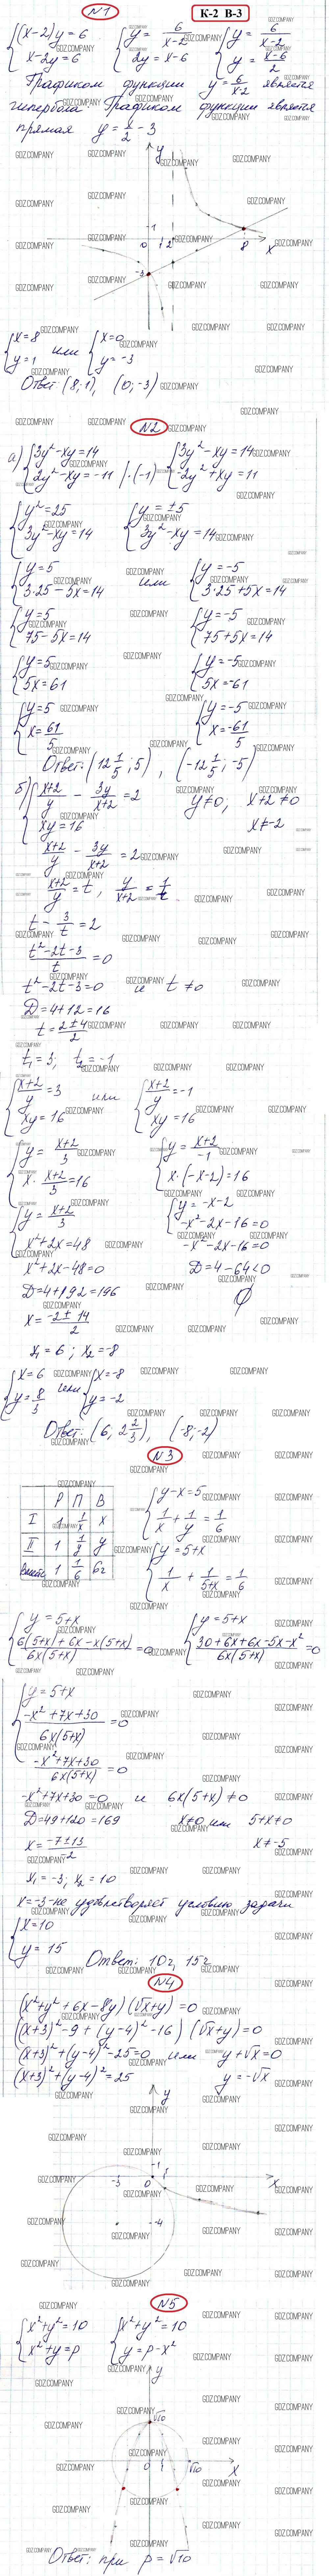 N1
К-2 В-3
{(x-2)y=6 {y=6/(x-2) {y=6/(x-2)
{x-2y=6 {2y=x-6 {y=(x-6)/2
Графиком функции y=6/(x-2) является
гипербола Графиком функции является
прямая y=x/2-3
y
1
0 1 2 8 x
-3
{x=8 или {x=0
{y=1 {y=-3
Ответ: (8;1), (0;-3)
N2
а) {3y²-xy=14 {3y²-xy=14
{2y²-xy=-11 |·(-1) {-2y²+xy=11
{y²=25 {y=±5
{3y²-xy=14 {3y²-xy=14
{y=5 или {y=-5
{3·25-5x=14 {3·25+5x=14
{y=5 {y=-5
{75-5x=14 {75+5x=14
{y=5 {y=-5
{5x=61 {5x=-61
{y=5 {y=-5
{x=61/5 {x=-61/5
Ответ: (12 1/5; 5), (-12 1/5; -5)
б) {(x+2)/y - 3y/(x+2)=2 y≠0; x+2≠0
{xy=16 x≠-2
(x+2)/y - 3y/(x+2)=2
(x+2)/y=t, y/(x+2)=1/t
t-3/t=2
(t²-2t-3)/t=0
t²-2t-3=0 и t≠0
D=4+12=16
t=(2±4)/2
t₁=3; t₂=-1
{(x+2)/y=3 или {(x+2)/y=-1
{xy=16 {xy=16
{y=(x+2)/3 {y=(x+2)/-1
{x·(x+2)/3=16 {x·(-x-2)=16
{y=(x+2)/3 {y=-x-2
{x²+2x=48 {-x²-2x-16=0
x²+2x-48=0 -x²-2x-16=0
D=4+192=196 D=4-64<0
x=(-2±14)/2 ∅
x₁=6; x₂=-8
{x=6 или {x=-8
{y=8/3 {y=-2
Ответ: (6; 2 2/3), (-8;-2)
N3
Р П В
I 1 1/x x
II 1 1/y y
вместе 1 1/6 6ч
{y-x=5
{1/x+1/y=1/6
{y=5+x
{1/x+1/(5+x)=1/6
{y=5+x {y=5+x
{(6(5+x)+6x-x(5+x))/(6x(5+x))=0 {(30+6x+6x-5x-x²)/(6x(5+x))=0
{y=5+x
{(-x²+7x+30)/(6x(5+x))=0
(-x²+7x+30)/(6x(5+x))=0
-x²+7x+30=0 и 6x(5+x)≠0
D=49+120=169 x≠0 или 5+x≠0
x=(-7±13)/-2 x≠-5
x₁=-3; x₂=10
x=-3-не удовлетворяет условию задачи
{x=10
{y=15 Ответ: 10ч, 15ч
N4
(x²+y²+6x-8y)(√x+y)=0
((x+3)²-9+(y-4)²-16)(√x+y)=0
(x+3)²+(y-4)²-25=0 или y+√x=0
(x+3)²+(y-4)²=25 y=-√x
y
1
-3 0 1 x
-4
N5
{x²+y²=10 {x²+y²=10
{x²+y=p {y=p-x²
y
√10
0 1 √10 x
Ответ: при p=√10
GDZ.COMPANY